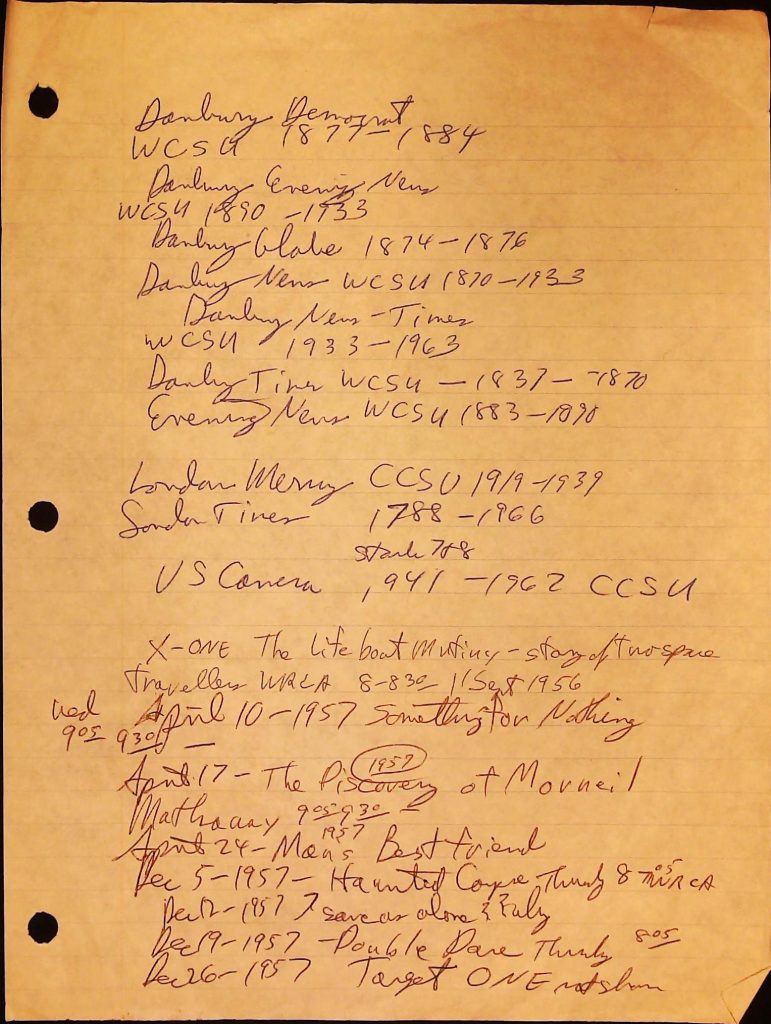 Danbury Democrat
WCSU 1877-1884
Danbury Evening News
WCSU 1890-1933
Danbury Globe 1874-1876
Danbury News WCSU 1870-1933
Danbury News-Times
WCSU 1933-1963
Danbury Times WCSU - 1837-1870
Evening News WCSU 1883-1890
London Mercury CCSU 1919-1939
London Times 1788-1966
US Camera 1941-1962 CCSU
X-ONE The Lifeboat Mutiny - story of two space
travellers WRCA 8-830 11 Sept 1956
April 10-1957 Something for Nothing
Wed 905 930 -
1957
April 17 - The Discovery of Morneil
Mathaway 905 930 -
1957
April 24 - Man's Best Friend
Dec 5-1957 - Haunted Corpse Thursday 8 05 WRCA
Dec 12-1957
Dec 19-1957 - Double Dare Thursday 805
Dec 26-1957 Target ONE